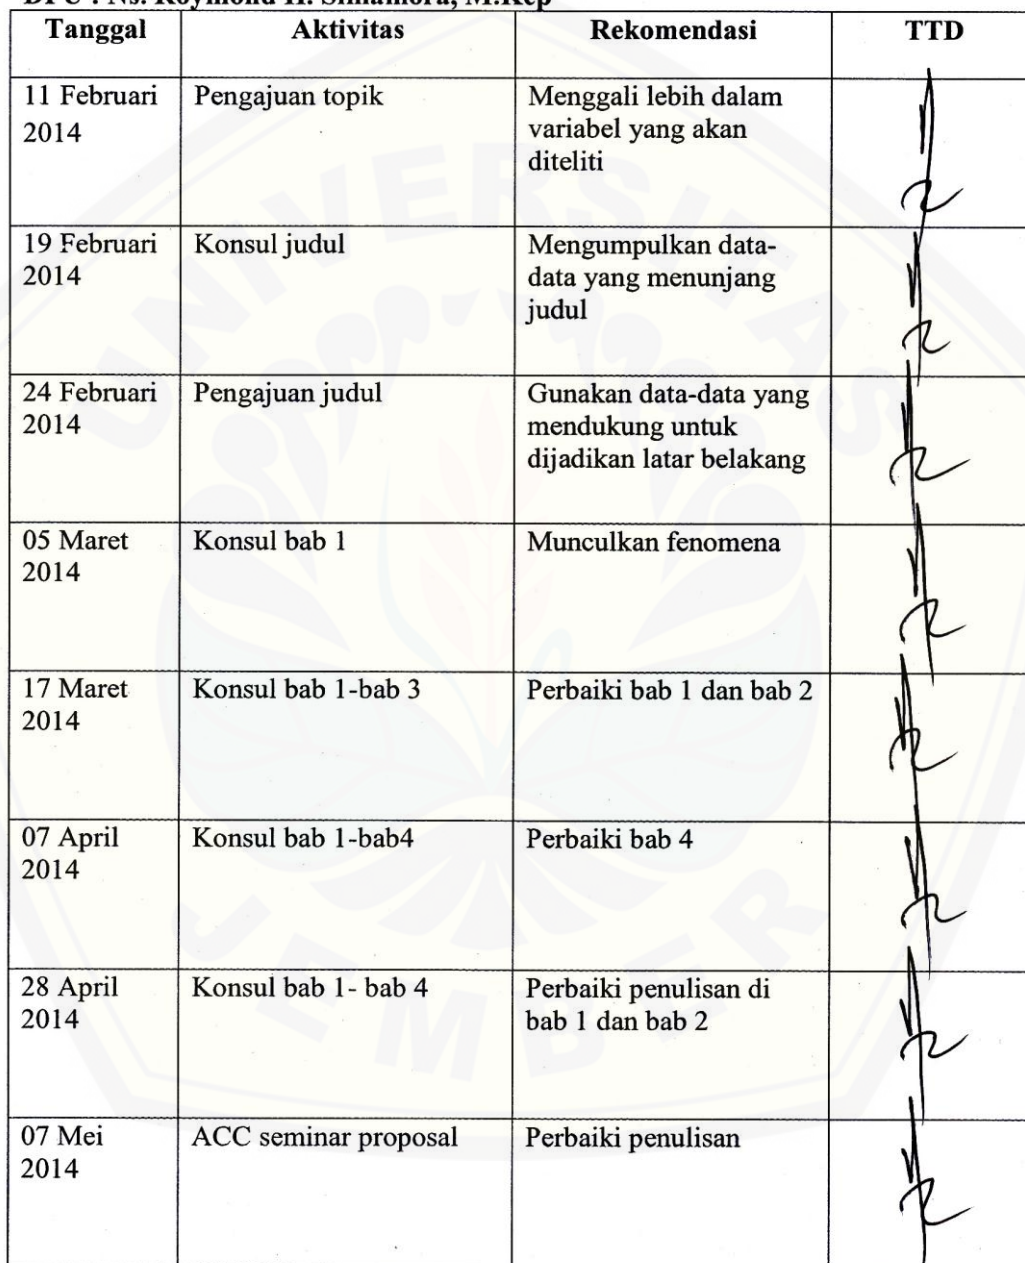 DPU : Ns. Roymond H. Simamora, M.Kep
Tanggal Aktivitas Rekomendasi TTD
11 Februari Pengajuan topik Menggali lebih dalam
2014 variabel yang akan
diteliti
19 Februari Konsul judul Mengumpulkan data-
2014 data yang menunjang
judul
24 Februari Pengajuan judul Gunakan data-data yang
2014 mendukung untuk
dijadikan latar belakang
05 Maret Konsul bab 1 Munculkan fenomena
2014
17 Maret Konsul bab 1-bab 3 Perbaiki bab 1 dan bab 2
2014
07 April Konsul bab 1-bab4 Perbaiki bab 4
2014
28 April Konsul bab 1- bab 4 Perbaiki penulisan di
2014 bab 1 dan bab 2
07 Mei ACC seminar proposal Perbaiki penulisan
2014
UNIVERSITAS
JEMBER